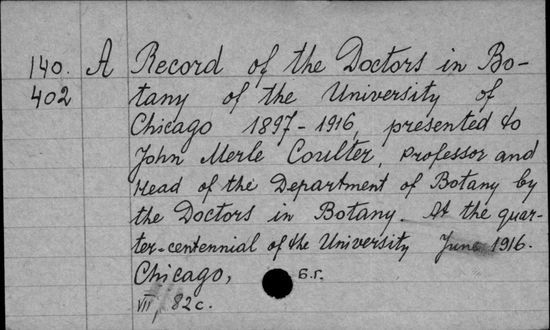 140. A Record of the Doctors in Bo-
402 tany of the University of
Chicago 1897-1916, presented to
John Merle Coulter, Professor and
Head of the Department of Botany by
the Doctors in Botany. At the quar-
ter-centennial of the University June 1916.
Chicago, б.г.
VII, 82c.